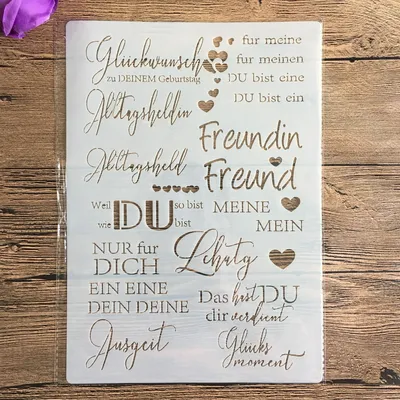 Glückwunsch
zu DEINEM Geburtstag
fur meine
fur meinen
DU bist eine
DU bist ein
Alltagsheldin
Freundin
Alltagsheld
Freund
Weil DU so bist
wie bist
MEINE
MEIN
NUR fur
DICH
Lehatg
EIN EINE
DEIN DEINE
Das hast DU
dir verdient
Ausgeit
Glücks
moment